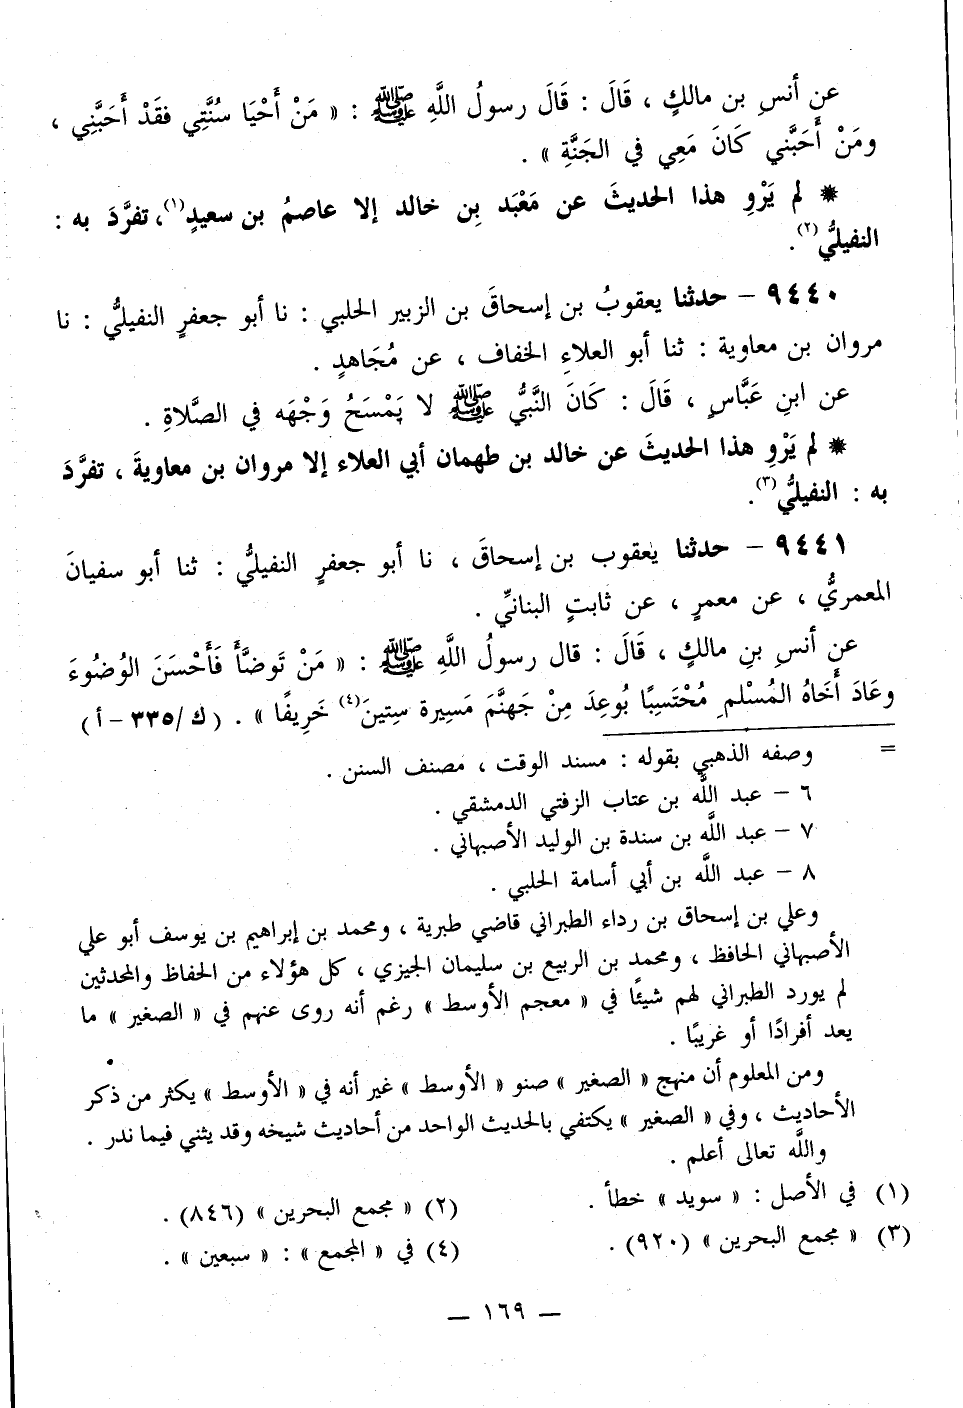 عن أنسِ بن مالكٍ ، قَالَ : قَالَ رسولُ اللَّهِ ﷺ : « مَنْ أَحْيَا سُنَّتِي فقَدْ أَحَبَّنِي ،
ومَنْ أَحَبَّني كَانَ مَعِي في الجَنَّةِ » .
* لم يَرْوِ هذا الحديثَ عن مَعْبَد بِن خالد إلا عاصمُ بن سعيدٍ(١)، تفرَّدَ به :
النفيليُّ(٢).
٩٤٤٠ – حدثنا يعقوبُ بن إسحاقَ بن الزبير الحلبي : نا أبو جعفرٍ النفيليُّ : نا
مروان بن معاوية : ثنا أبو العلاءِ الخفاف ، عن مُجَاهدٍ .
عن ابنِ عَبَّاسٍ ، قَالَ : كَانَ النَّبيُّ ﷺ لا يَمْسَحُ وَجْهَه في الصَّلاةِ .
* لم يَرْوِ هذا الحديثَ عن خالد بن طهمان أبي العلاء إلا مروان بن معاويةَ ، تفرَّدَ
به : النفيليُّ(٣).
٩٤٤١ – حدثنا يعقوب بن إسحاقَ ، نا أبو جعفرٍ النفيليُّ : ثنا أبو سفيانَ
المعمريُّ ، عن معمرٍ ، عن ثابتٍ البنانيِّ .
عن أنسِ بنِ مالكٍ ، قَالَ : قال رسولُ اللَّهِ ﷺ : « مَنْ تَوضَّأَ فَأَحْسَنَ الوُضُوءَ
وعَادَ أَخَاهُ المُسْلم مُحْتَسِبًا بُوعِدَ مِنْ جَهنَّمَ مَسِيرة سِتينَ(٤) خَرِيفًا » . (ك /٣٣٥ – أ)
= وصفه الذهبي بقوله : مسند الوقت ، مصنف السنن .
٦ – عبد اللَّه بن عتاب الزفتي الدمشقي .
٧ – عبد اللَّه بن سندة بن الوليد الأصبهاني .
٨ – عبد اللَّه بن أبي أسامة الحلبي .
وعلي بن إسحاق بن رداء الطبراني قاضي طبرية ، ومحمد بن إبراهيم بن يوسف أبو علي
الأصبهاني الحافظ ، ومحمد بن الربيع بن سليمان الجيزي ، كل هؤلاء من الحفاظ والمحدثين
لم يورد الطبراني لهم شيئًا في « معجم الأوسط » رغم أنه روى عنهم في « الصغير » ما
يعد أفرادًا أو غريبًا .
ومن المعلوم أن منهج « الصغير » صنو « الأوسط » غير أنه في « الأوسط » يكثر من ذكر
الأحاديث ، وفي « الصغير » يكتفي بالحديث الواحد من أحاديث شيخه وقد يثني فيما ندر .
واللَّه تعالى أعلم .
(١) في الأصل : « سويد » خطأ . (٢) « مجمع البحرين » (٨٤٦) .
(٣) « مجمع البحرين » (٩٢٠) . (٤) في « المجمع » : « سبعين » .
— ١٦٩ —